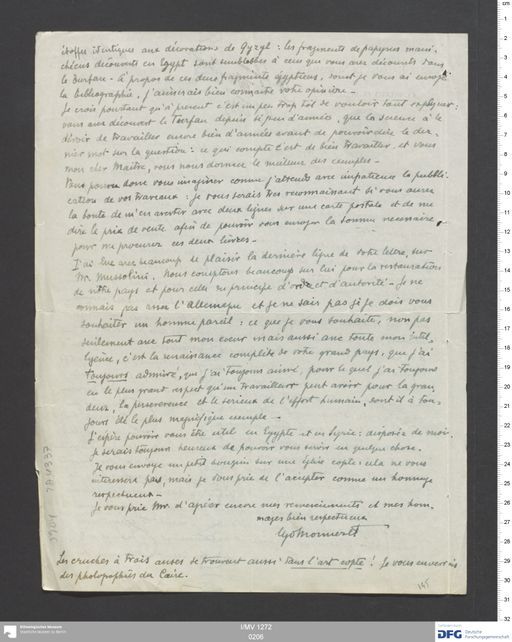 étoffes identiques aux décorations de Qyzyl : les fragments de papyrus mani-
chéens découverts en Egypt sont semblables à ceux que vous avez découverts dans
le Turfan - à propos de ces deux fragments égyptiens, dont je vous ai envoyé
la bibliographie, j'aimerais bien connaitre votre opinion -
Je crois pourtant qu'à present c'est un peu trop tôt de vouloir tout expliquer :
vous avez découvert le Turfan depuis si peu d'années, que la science a le
devoir de travailler encore bien d'années avant de pouvoir dire le der-
nier mot sur la question : ce qui compte c'est de bien travailler, et vous
mon cher Maître, vous nous donnez le meilleur des exemples -
Vous pouvez donc vous imaginer comme j'attends avec impatience la publi-
cation de vos travaux : je vous serais très reconnaissant si vous aurez
la bonté de m'en avertir avec deux lignes sur une carte postale et de me
dire le prix de vente afin de pouvoir vous envoyer la somme necessaire,
pour me procurer ces deux livres -
J'ai lu avec beaucoup de plaisir la dernière ligne de votre lettre, sur
Mr. Mussolini. Nous comptons beaucoup sur lui pour la restauration
de notre pays et pour celle du principe d'ordre et d'autorité - Je ne
connais pas assez l'Allemagne et je ne sais pas si je dois vous
souhaiter un homme pareil : ce que je vous souhaite, non pas
seulement avec tout mon coeur mais aussi avec toute mon intel-
ligence, c'est la renaissance complète de votre grand pays, que j'ai
toujours admiré, que j'ai toujours aimé, pour lequel j'ai toujours
eu le plus grand respect qu'un travailleur peut avoir pour la gran-
deur, la perseverence et le serieux de l'effort humain, dont il a tou-
jours été le plus magnifique exemple -
J'espère pouvoir vous être util en Egypte et en Syrie : disposez de moi.
Je serais toujours heureux de pouvoir vous servir en quelque chose.
Je vous envoye un petit bouquin sur une église copte : cela ne vous
interessera pas, mais je vous prie de l'accepter comme un hommage
respectueux -
Je vous prie Mr. d'agréer encore mes remerciements et mes hom-
mages bien respectueux
Les cruches à trois anses se trouvent aussi dans l'art copte ! Je vous enverrai
des photographies du Caire.
I/MV 1272
0206
Ethnologisches Museum
Staatliche Museen zu Berlin
DFG Deutsche
Forschungsgemeinschaft